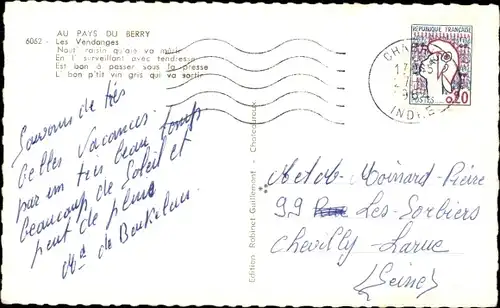 AU PAYS DU BERRY
6062 - Les Vendanges
Nout' raisin qu'alle va mûrir
En l' surveillant avec tendresse
Est bon à passer sous la presse
L' bon p'tit vin gris qui va sortir
RÉPUBLIQUE FRANÇAISE
POSTES
0,20
INDRE
Souvenir de très
belles vacances
par un très beau temps
beaucoup de Soleil et
peut de pluie
Edition Robinet-Guillemont - Chateauroux
Moinard-Pierre
99 Les-Sorbiers
Chevilly-Larue
(Seine)